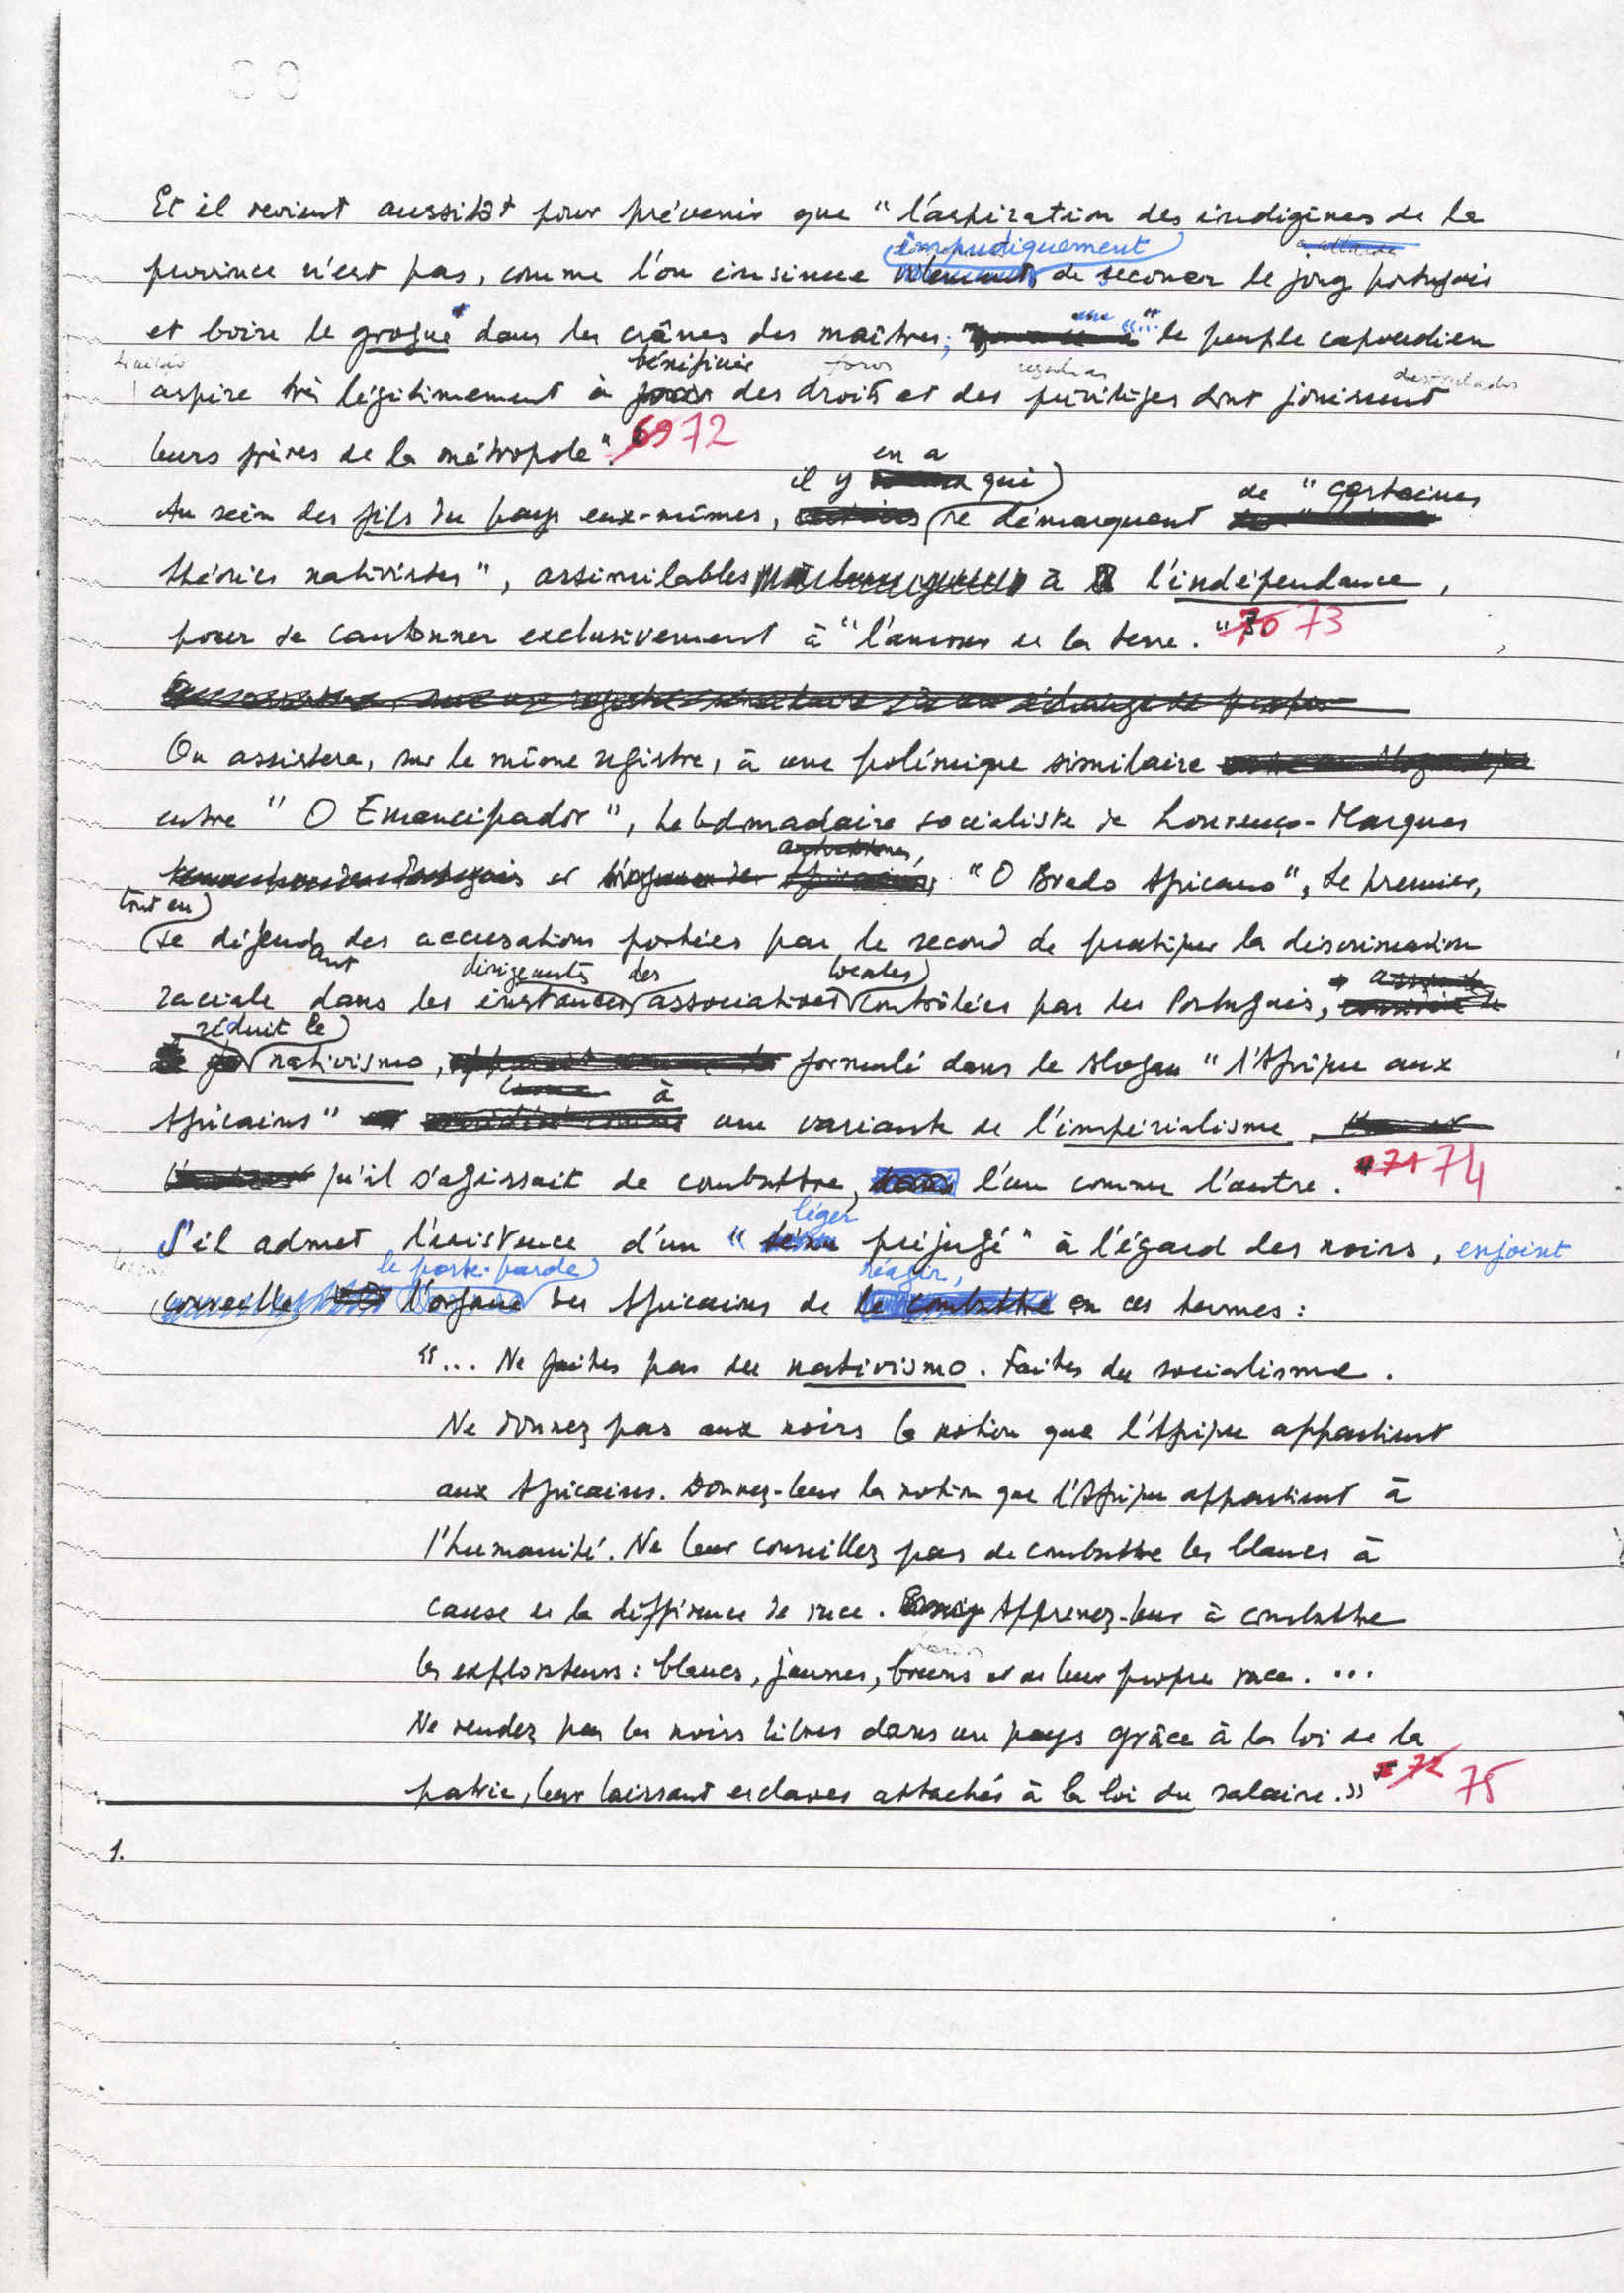 Et il revient aussitôt pour prévenir que "l'aspiration des indigènes de la
impudiquement
province n'est pas, comme l'on insinue de secouer le joug portugais
et boire le grogue* dans les crânes des maîtres; "..." le peuple capverdien
bénéficier foros regalias desfrutados
aspire très légitimement à des droits et des privilèges dont jouissent
leurs frères de la métropole". 72
il y en a qui de "certaines
Au sein des fils du pays eux-mêmes, se démarquent
théories nativistes", assimilables à l'indépendance,
pour se cantonner exclusivement à "l'amour de la terre." 73
On assistera, sur le même registre, à une polémique similaire
entre "O Emancipador", hebdomadaire socialiste de Lourenço-Marques
et "O Brado Africano", Le premier,
tout en
se défendant des accusations portées par le second de pratiquer la discrimination
dirigeantes des locales
raciale dans les instances associatives contrôlées par les Portugais,
réduit le
nativismo, formulé dans le slogan "l'Afrique aux
à
Africains" une variante de l'impérialisme,
qu'il s'agissait de combattre, l'un comme l'autre. 74
léger
S'il admet l'existence d'un " préjugé" à l'égard des noirs, enjoint
le porte-parole réagir,
des Africains de en ces termes:
"... Ne faites pas du nativismo. Faites du socialisme.
Ne donnez pas aux noirs la notion que l'Afrique appartient
aux Africains. Donnez-leur la notion que l'Afrique appartient à
l'humanité. Ne leur conseillez pas de combattre les blancs à
cause de la différence de race. Apprenez-leur à combattre
les exploiteurs: blancs, jaunes, bruns et de leur propre race. ...
Ne rendez pas les noirs libres dans un pays grâce à la loi de la
patrie, leur laissant esclaves attachés à la loi du salaire.» 75
1.